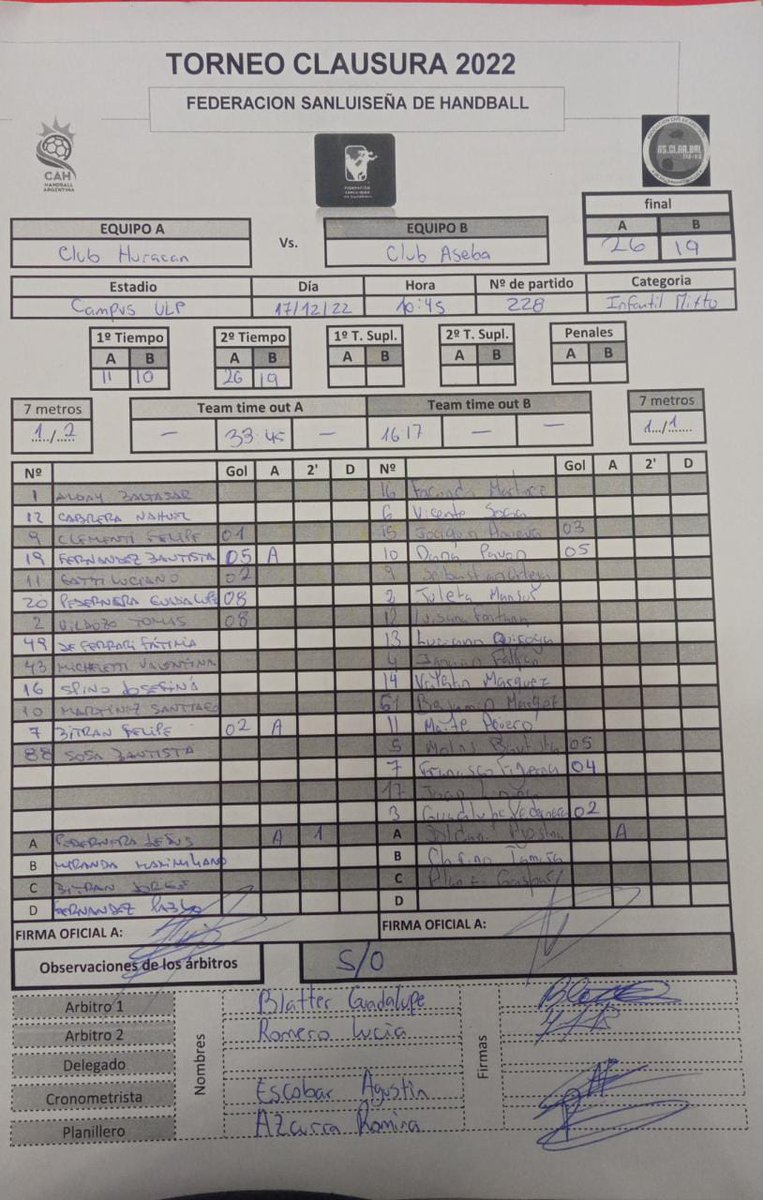 TORNEO CLAUSURA 2022
FEDERACION SANLUISEÑA DE HANDBALL
CAH
HANDBALL
ARGENTINA
EQUIPO A Vs. EQUIPO B final
Club Huracan Club Aseba A B
26 19
Estadio Día Hora Nº de partido Categoria
Campus ULP 17/12/22 10:45 228 Infantil Mixto
1º Tiempo 2º Tiempo 1º T. Supl. 2º T. Supl. Penales
A B A B A B A B A B
11 10 26 19
7 metros Team time out A Team time out B 7 metros
1/2 — 33:45 — 16:17 — — 1/1
Nº Gol A 2' D Nº Gol A 2' D
1 ALDAY BALTASAR 16 Facundo
12 CABRERA NAHUEL 6 Vicente Sosa
9 CLEMENTI FELIPE 01 15 03
19 FERNANDEZ BAUTISTA 05 A 10 Pavon 05
11 GATTI LUCIANO 02 9 Sebastian Ortega
20 PEDERNERA GUADALUPE 08 2
2 VILDOZO TOMAS 08 12
49 DE FERRARI FÁTIMA 13 Luciano Quiroga
43 MICHELETTI VALENTINA 4
16 SPINO JOSEFINA 14 Valentin Marquez
10 MARTINEZ SANTIAGO 61 Benjamin
7 BITRAN FELIPE 02 A 11 Maite
88 SOSA BAUTISTA 5 Bautista 05
7 Francisco 04
17 Joan
3 Guadalupe 02
A PEDERNERA JESUS A 1 A A
B MIRANDA MAXIMILIANO B
C BITRAN JORGE C
D FERNANDEZ PABLO D
FIRMA OFICIAL A: FIRMA OFICIAL A:
Observaciones de los árbitros S/O
Nombres Firmas
Arbitro 1 Blatter Guadalupe
Arbitro 2 Romero Lucia
Delegado
Cronometrista Escobar Agustin
Planillero Azcurra Romina